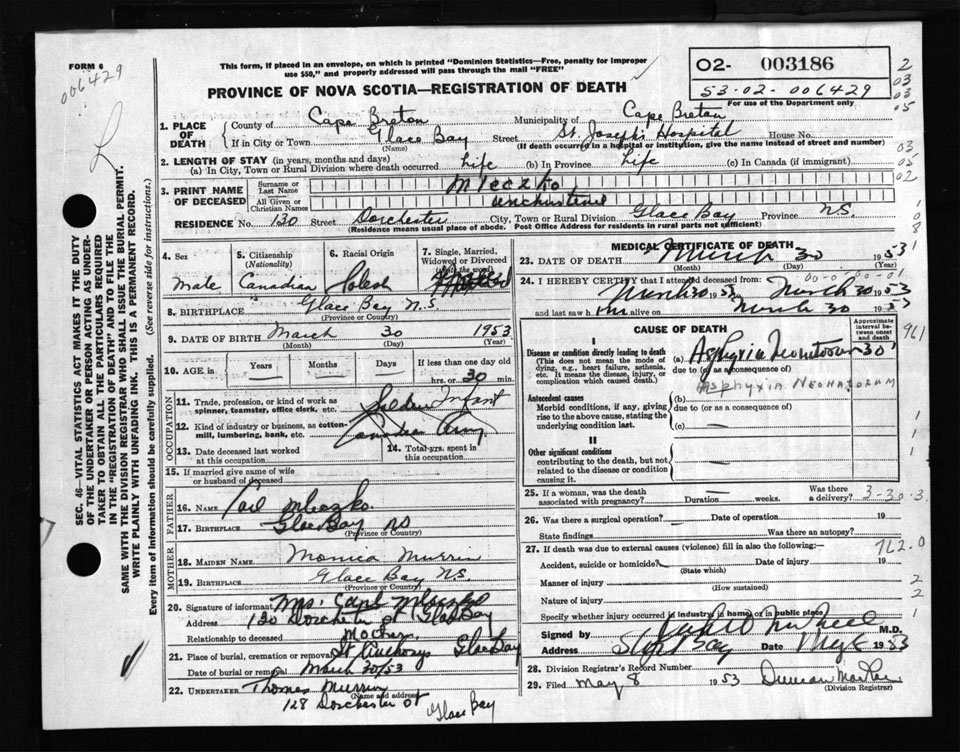 FORM 6
006429
This form, if placed in an envelope, on which is printed "Dominion Statistics—Free, penalty for improper
use $50," and properly addressed will pass through the mail "FREE"
PROVINCE OF NOVA SCOTIA—REGISTRATION OF DEATH
O2- 003186
53-02-006429
For use of the Department only
2
03
03
05
03
05
02
1. PLACE OF DEATH
County of Cape Breton Municipality of Cape Breton
If in City or Town Glace Bay Street St. Joseph's Hospital House No.
(Name) (If death occurred in a hospital or institution, give the name instead of street and number)
2. LENGTH OF STAY (in years, months and days)
(a) In City, Town or Rural Division where death occurred Life (b) In Province Life (c) In Canada (if immigrant)
3. PRINT NAME OF DECEASED
Surname or Last Name Mleczko
All Given or Christian Names unchristened
RESIDENCE No. 130 Street Dorchester City, Town or Rural Division Glace Bay Province N.S.
(Residence means usual place of abode. Post Office Address for residents in rural parts not sufficient)
4. Sex
Male
5. Citizenship
(Nationality)
Canadian
6. Racial Origin
Polish
7. Single, Married,
Widowed or Divorced
8. BIRTHPLACE Glace Bay N.S.
(Province or Country)
9. DATE OF BIRTH March 30 1953
(Month) (Day) (Year)
10. AGE in Years Months Days If less than one day
hrs. or 30 min.
OCCUPATION
11. Trade, profession, or kind of work as
spinner, teamster, office clerk, etc. Soldier Infant
12. Kind of industry or business, as cotton-
mill, lumbering, bank, etc. Canadian Army
13. Date deceased last worked
at this occupation
14. Total yrs. spent in
this occupation
15. If married give name of wife
or husband of deceased
FATHER
16. NAME Carl Mleczko
17. BIRTHPLACE Glace Bay NS
(Province or Country)
MOTHER
18. MAIDEN NAME Monica Murrin
19. BIRTHPLACE Glace Bay N.S.
(Province or Country)
20. Signature of informant Mrs. Carl Mleczko
Address 130 Dorchester St Glace Bay
Relationship to deceased Mother
21. Place of burial, cremation or removal St Anthonys Glace Bay
Date of burial or removal March 30/53
22. UNDERTAKER Thomas Murrin
(Name and address)
128 Dorchester St
Glace Bay
MEDICAL CERTIFICATE OF DEATH
23. DATE OF DEATH March 30 1953
(Month) (Day) (Year)
24. I HEREBY CERTIFY that I attended deceased from: 00-0-00-01
March 30 1953 to March 30 1953
and last saw him alive on March 30 1953
CAUSE OF DEATH
Approximate
interval be-
tween onset
and death
I
Disease or condition directly leading to death
(This does not mean the mode of
dying, e.g., heart failure, asthenia,
etc. It means the disease, injury, or
complication which caused death.)
(a) Asphyxia Neonatorum 30'
due to (or as a consequence of)
ASPHYXIA NEONATORUM
Antecedent causes
Morbid conditions, if any, giving
rise to the above cause, stating the
underlying condition last.
(b)
due to (or as a consequence of)
(c)
II
Other significant conditions
contributing to the death, but not
related to the disease or condition
causing it.
25. If a woman, was the death
associated with pregnancy? Duration weeks. Was there
a delivery? 3-30-3
26. Was there a surgical operation? Date of operation 19
State findings Was there an autopsy?
27. If death was due to external causes (violence) fill in also the following:— 762.0
Accident, suicide or homicide? Date of injury 19
(State which)
Manner of injury
(How sustained)
Nature of injury
Specify whether injury occurred in industry, in home, or in public place
Signed by M.D.
Address Date 1953
28. Division Registrar's Record Number
29. Filed May 8 1953
(Division Registrar)
SEC. 46—VITAL STATISTICS ACT MAKES IT THE DUTY
OF THE UNDERTAKER OR PERSON ACTING AS UNDER-
TAKER TO OBTAIN ALL THE PARTICULARS REQUIRED
IN THE "REGISTRATION OF DEATH" AND TO FILE THE
SAME WITH THE DIVISION REGISTRAR WHO SHALL ISSUE THE BURIAL PERMIT.
WRITE PLAINLY WITH UNFADING INK. THIS IS A PERMANENT RECORD.
Every item of information should be carefully supplied. (See reverse side for instructions.)